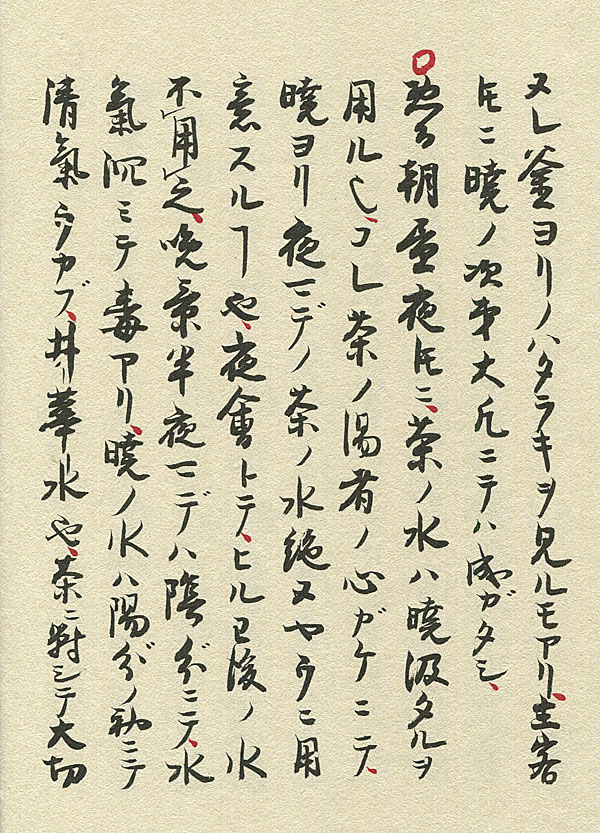 ヌレ釜ヨリノハタラキヲ見ルモアリ、主客
𪜈ニ暁ノ次第大凡ニテハ成ガタシ、
惣而朝昼夜𪜈ニ、茶ノ水ハ暁汲タルヲ
用ル也、コレ茶ノ湯者ノ心ガケニテ、
暁ヨリ夜マデノ茶ノ水絶ヌヤウニ用
意スルヿ也、夜會トテ、ヒル已後ノ水
不㆑用㆑之、晩景半夜マデハ陰分ニテ、水
氣沉ミテ毒アリ、暁ノ水ハ陽分ノ初ニテ
清氣ウカブ、井華水也、茶ニ對シテ大切